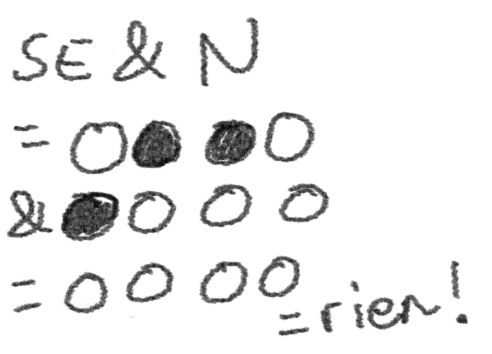 SE & N
= ○ ● ● ○
& ● ○ ○ ○
= ○ ○ ○ ○
= rien!